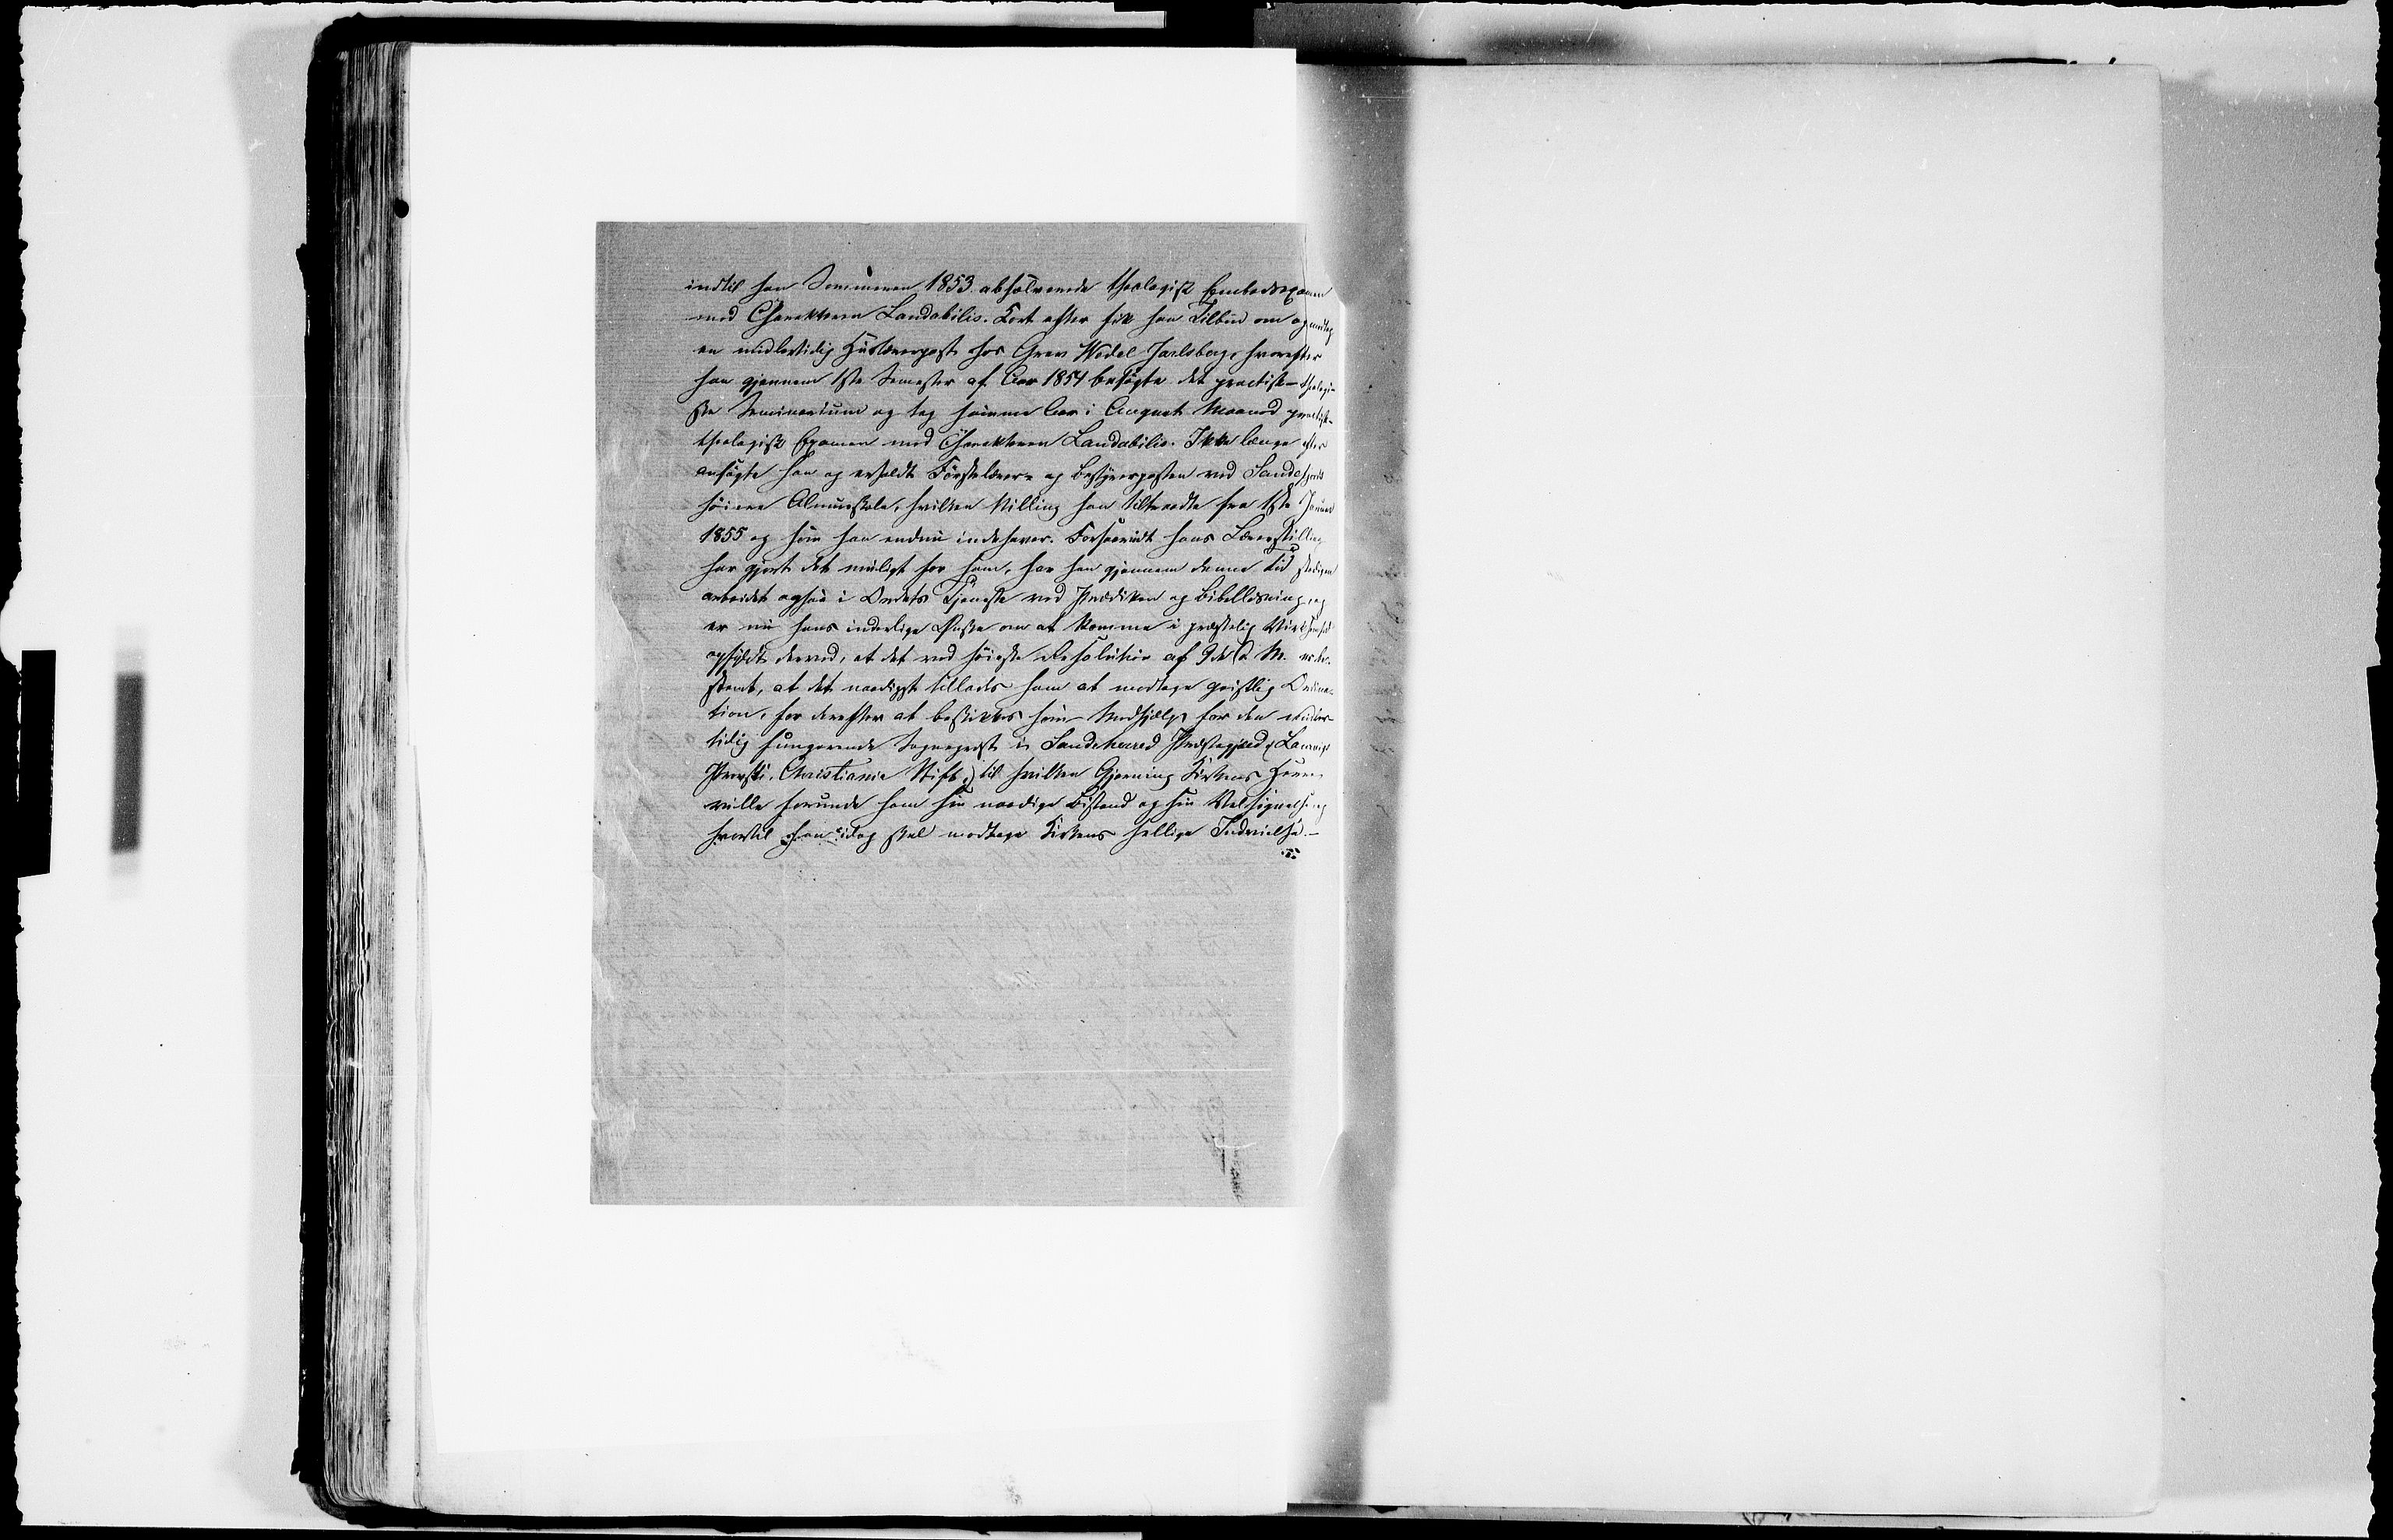 indtil han Sommeren 1853 absolverede theologisk Embedsexamen
med Charakteren Laudabilis. Kort efter fik han Tilbud om og modtog
en midlertidig Huslærerpost hos Grev Wedel Jarlsberg, hvorefter
han gjennem 1ste Semester af Aar 1854 besøgte det practisk-theologi-
ske Seminarium og tog samme Aar i August Maaned practisk-
theologisk Examen med Charakteren Laudabilis. Ikke længe efter
ansøgte han og erholdt Førstelærer- og Bestyrerposten ved Sandefjords
høiere Almueskole, hvilken Stilling han tiltraadte fra 1ste Januar
1855 og som han endnu indehaver. Forsaavidt hans Lærerstilling
har gjort det muligt for ham, har han gjennem denne Tid stadigen
arbeidet ogsaa i Ordets Tjeneste ved Prædiken og Bibellæsning, og
er nu hans inderlige Ønske om at komme i præstelig Virksomhed
opfyldt derved, at det ved høieste Resolution af 9de d. M. er be-
stemt, at det naadigst tillades ham at modtage geistlig Ordina-
tion, for derefter at beskikkes som Medhjælp for den midler-
tidig fungerende Sognepræst i Sandeherred Præstegjeld (Laurvigs
Provsti, Christiania Stift,) til hvilken Gjerning Kirkens Herre
ville forunde ham sin naadige Bistand og sin Velsignelse, og
hvortil han idag skal modtage Kirkens hellige Indvielse.-